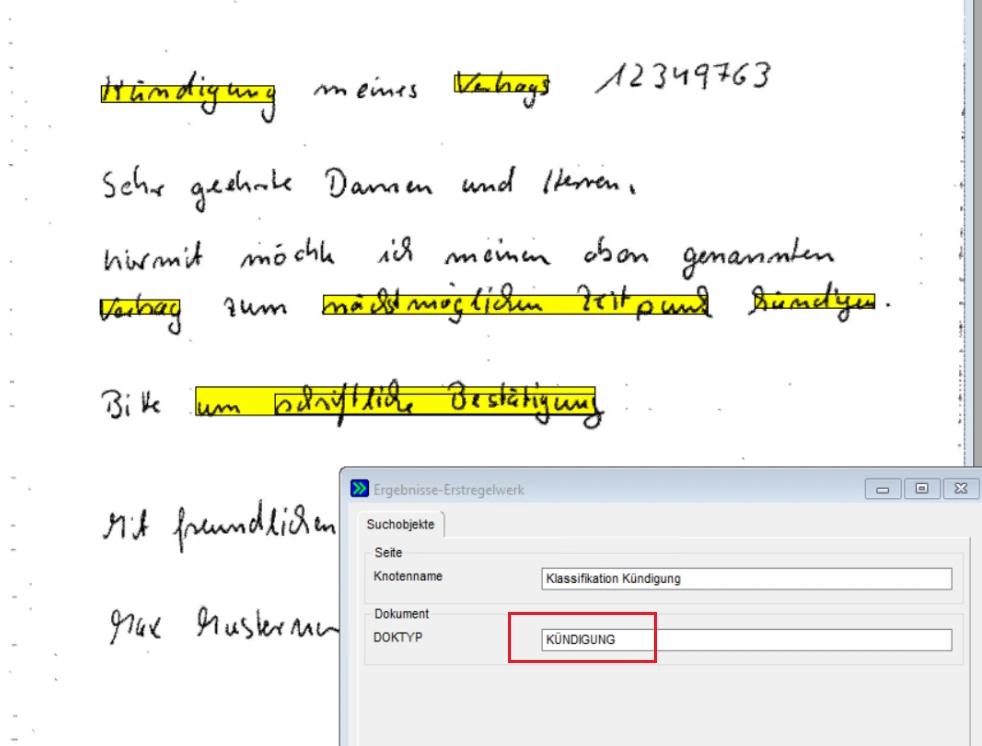 Kündigung meines Vertrags 12349763
Sehr geehrte Damen und Herren,
hiermit möchte ich meinen oben genannten
Vertrag zum nächstmöglichen Zeitpunkt kündigen.
Bitte um schriftliche Bestätigung
Mit freundlichen
Max Musterman
Ergebnisse-Erstregelwerk
Suchobjekte
Seite
Knotenname Klassifikation Kündigung
Dokument
DOKTYP KÜNDIGUNG